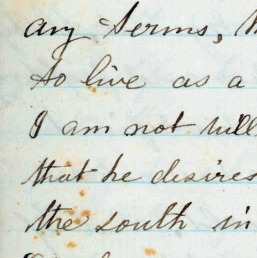 any terms,
to live as a
I am not will
that he desires
the south in